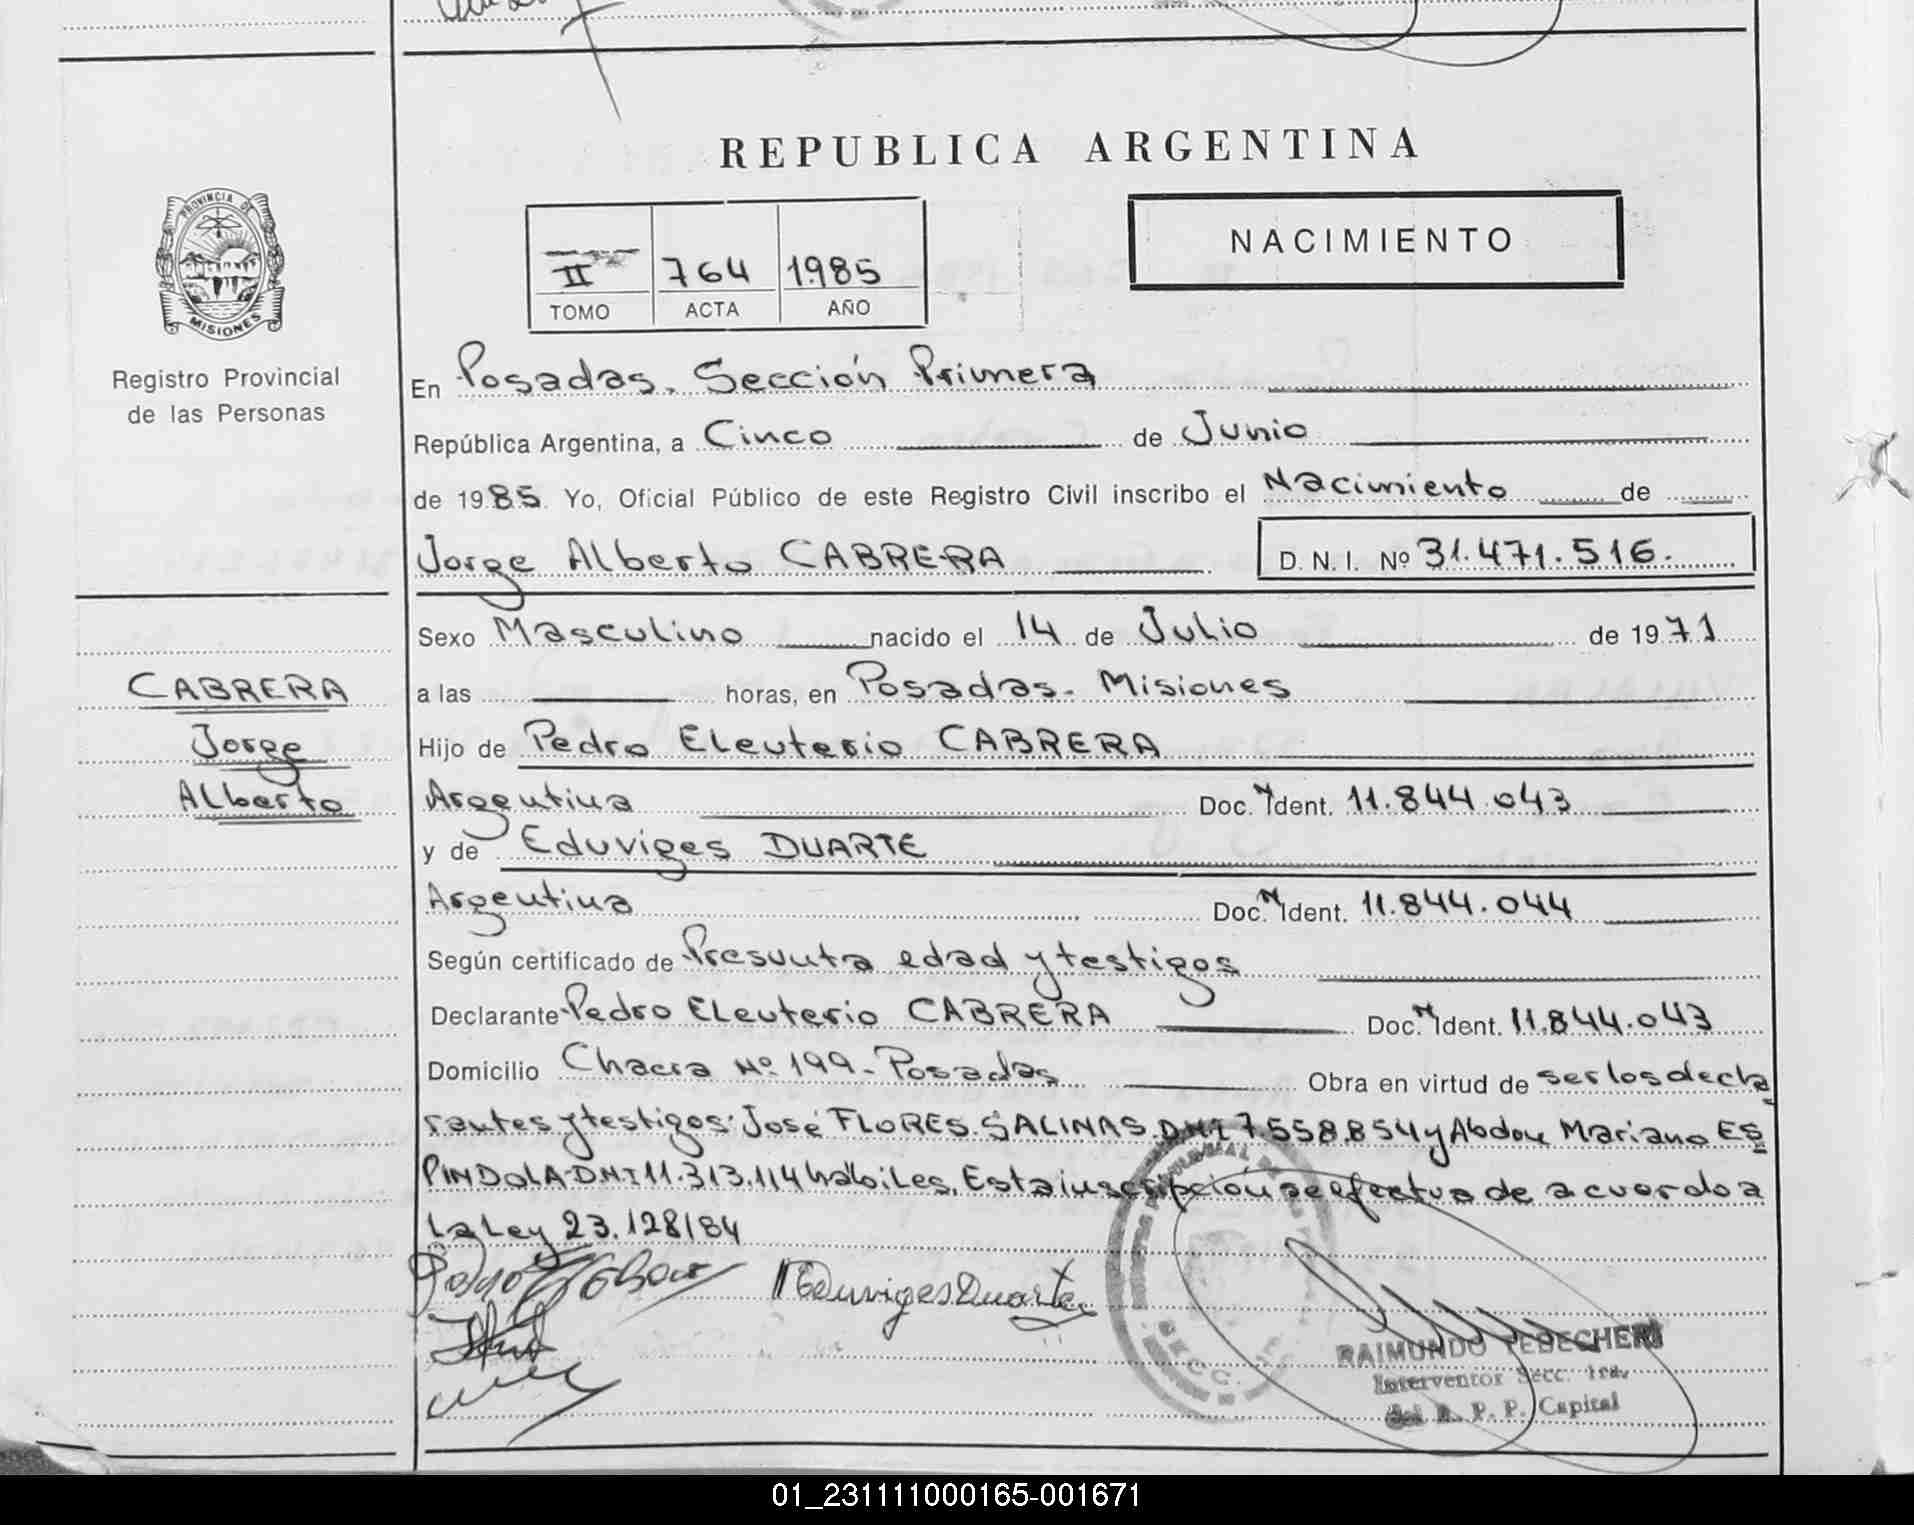 REPUBLICA ARGENTINA
PROVINCIA DE
MISIONES
Registro Provincial
de las Personas
II 764 1985
TOMO ACTA AÑO
NACIMIENTO
En Posadas. Sección Primera
República Argentina, a Cinco de Junio
de 1985. Yo, Oficial Público de este Registro Civil inscribo el Nacimiento de
Jorge Alberto CABRERA D. N. I. Nº 31.471.516.
Sexo Masculino nacido el 14 de Julio de 1971
CABRERA
Jorge
Alberto
a las horas, en Posadas - Misiones
Hijo de Pedro Eleuterio CABRERA
Argentina Doc. N Ident. 11.844.043
y de Eduviges DUARTE
Argentina Doc. N Ident. 11.844.044
Según certificado de Presunta edad y testigos
Declarante Pedro Eleuterio CABRERA Doc. N Ident. 11.844.043
Domicilio Chacra Nº 199 - Posadas Obra en virtud de ser los decla
rantes y testigos: José FLORES SALINAS. DNI 7.558.854 y Abdon Mariano ES
PINDOLA DNI 11.313.114 hábiles. Esta inscripción se efectua de acuerdo a
la Ley 23.128/84
Eduviges Duarte
RAIMUNDO
Interventor Secc. 1ra.
del R. P. P. Capital
01_231111000165-001671